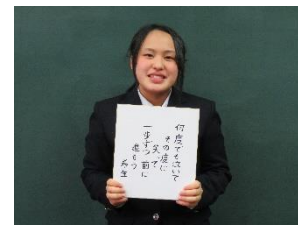 何度でも泣いて
その度に
笑って
一歩ずつ前に
進もう